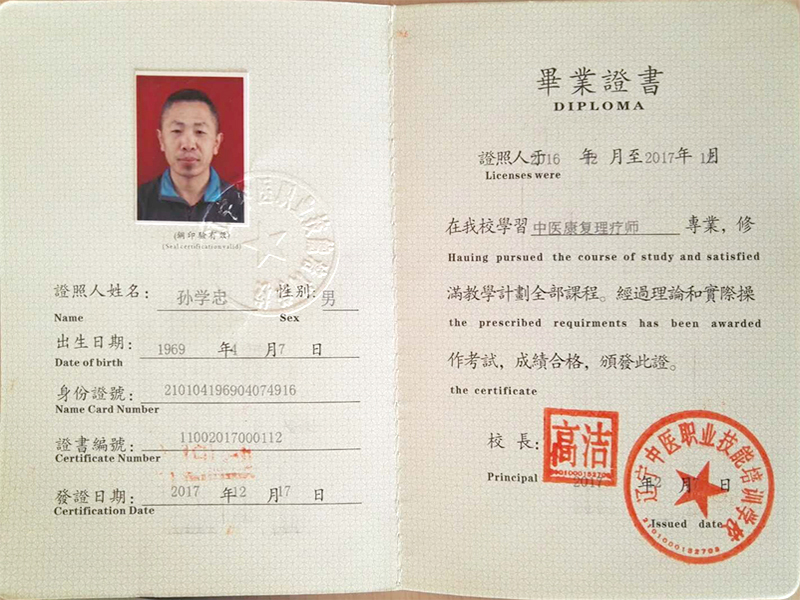 (鋼印驗有效)
(Seal certification valid)
證照人姓名: 孙学忠 性别: 男
Name Sex
出生日期: 1969 年4 月7 日
Date of birth
身份證號: 210104196904074916
Name Card Number
證書編號: 11002017000112
Certificate Number
發證日期: 2017 年12 月17 日
Certification Date
畢業證書
DIPLOMA
證照人于2016 年12 月至2017年 1月
Licenses were
在我校學習 中医康复理疗师 專業，修
Hauing pursued the course of study and satisfied
滿教學計劃全部課程。經過理論和實際操
the prescribed requirments has been awarded
作考試，成績合格，頒發此證。
the certificate
校長: 高洁
Principal
2017 年 2 月 日
Issued date
辽宁中医职业技能培训学校